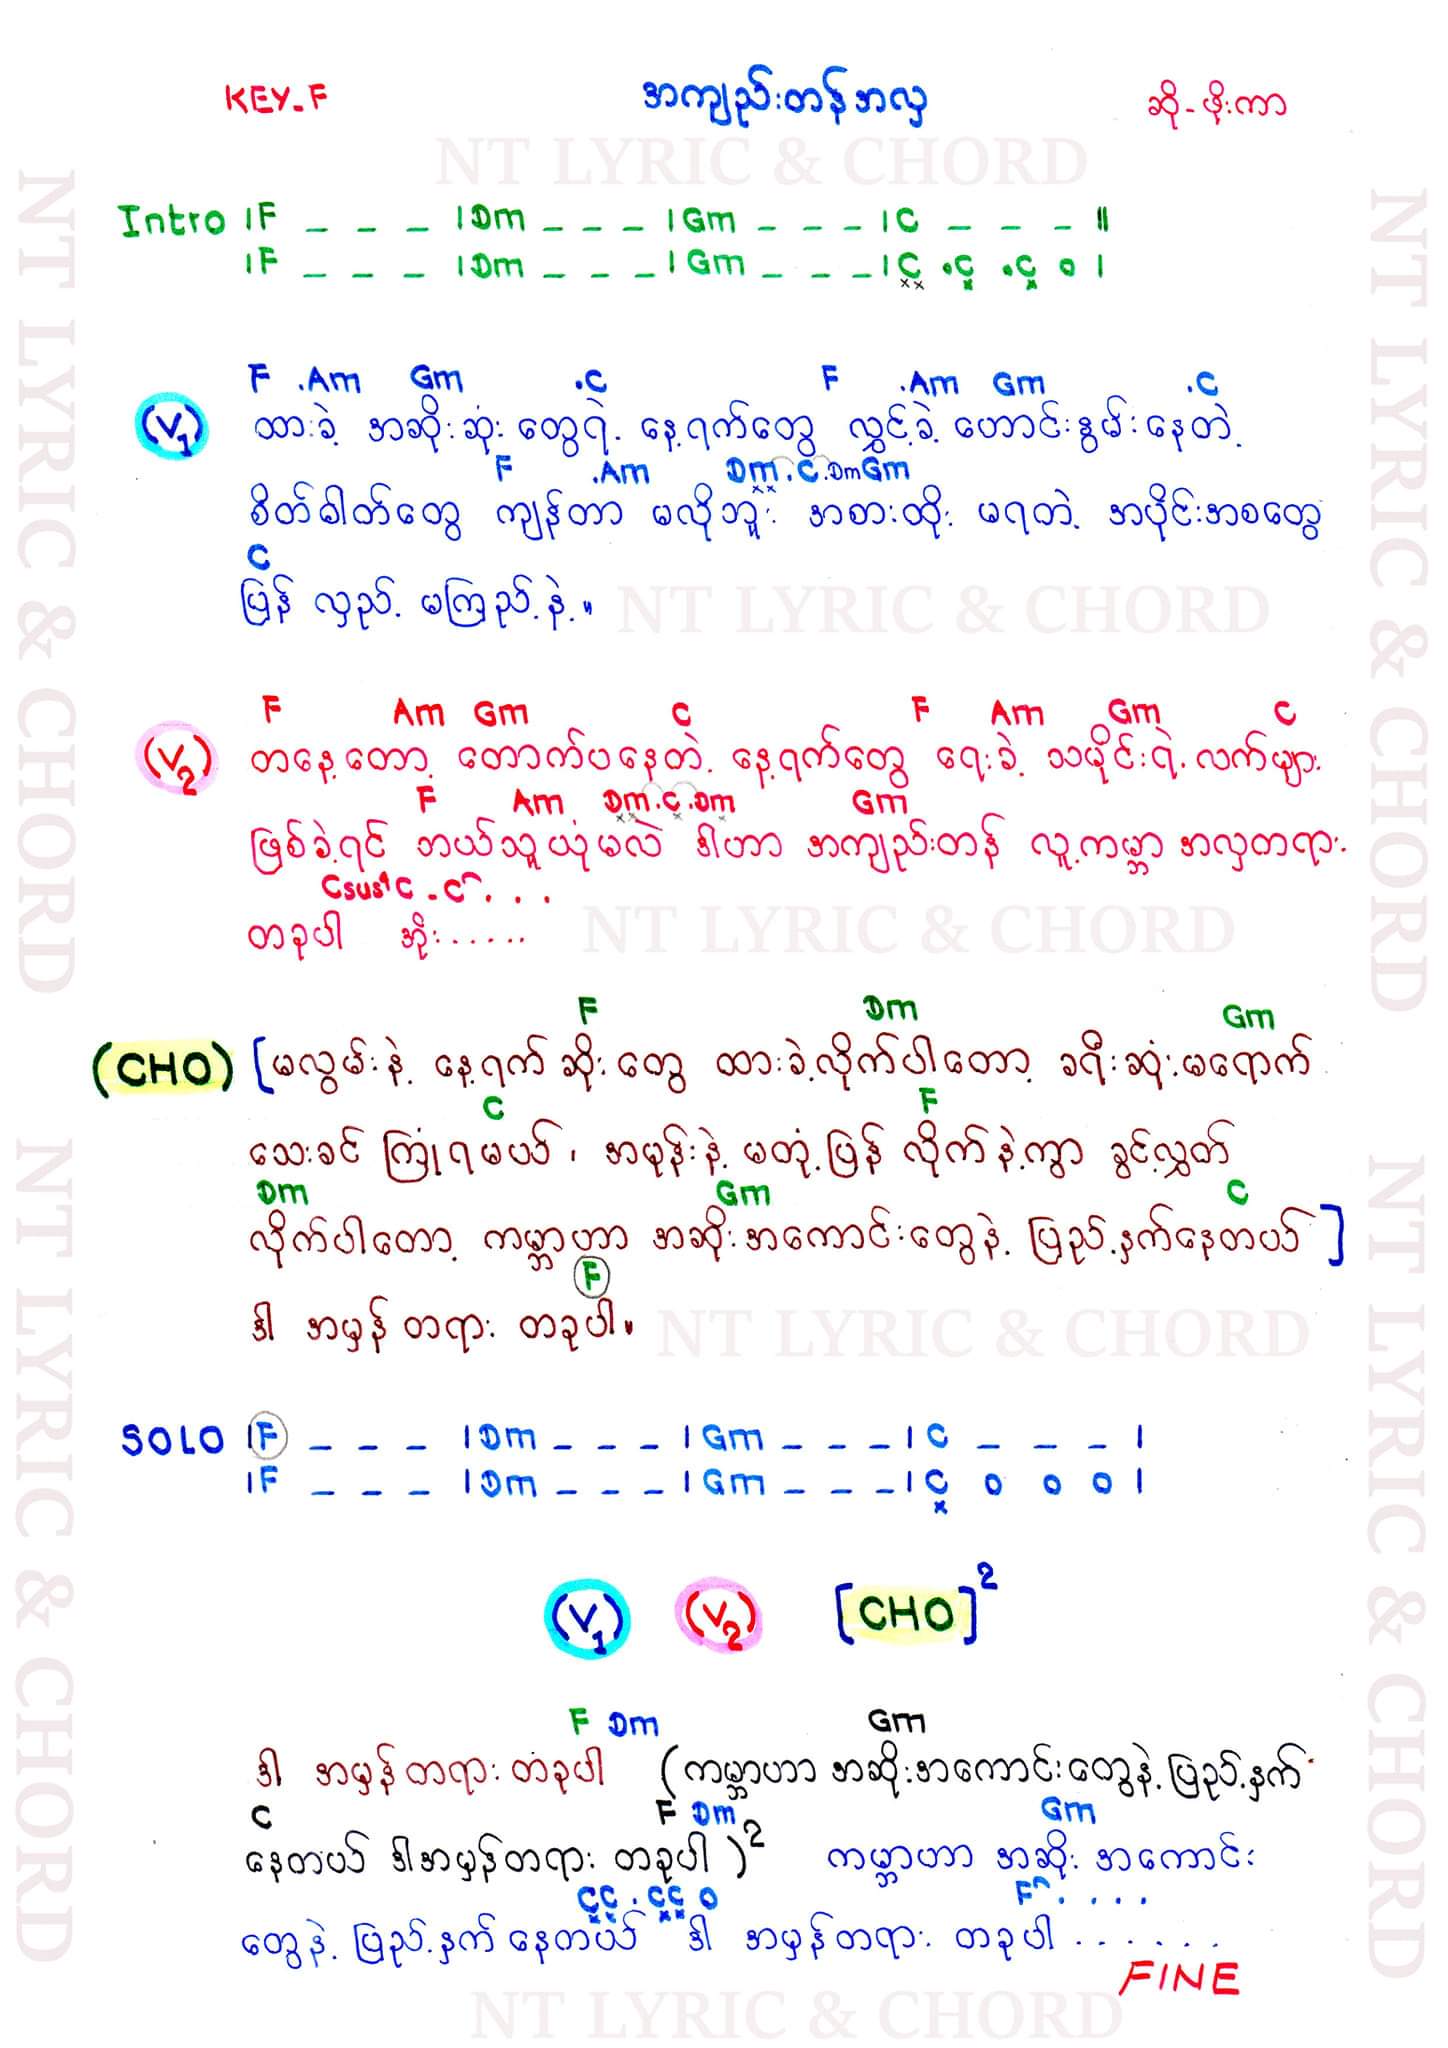 KEY-F အကျည်းတန်အလှ ဆို-ဖိုးကာ
NT LYRIC & CHORD
Intro |F _ _ _ |Dm _ _ _ |Gm _ _ _ |C _ _ _ ||
|F _ _ _ |Dm _ _ _ |Gm _ _ _ |C .C .C 0 |
F .Am Gm .C F .Am Gm .C
(V1) ထားခဲ့ အဆိုးဆုံး တွေရဲ့ နေ့ရက်တွေ လွှင့်ခဲ့ ဟောင်းနွမ်းနေတဲ့
F .Am Dm.C.Dm Gm
စိတ်ဓါတ်တွေ ကျန်တာ မလိုဘူး အစားထိုး မရတဲ့ အပိုင်းအစတွေ
C
ပြန် လှည့် မကြည့်နဲ့။
NT LYRIC & CHORD
F Am Gm C F Am Gm C
(V2) တနေ့တော့ တောက်ပနေတဲ့ နေ့ရက်တွေ ရေးခဲ့ သမိုင်းရဲ့ လက်များ
F Am Dm.C.Dm Gm
ဖြစ်ခဲ့ရင် ဘယ်သူယုံမလဲ ဒါဟာ အကျည်းတန် လူ့ကမ္ဘာ အလှတရား
Csus4 C - C . . .
တခုပါ အိုး......
NT LYRIC & CHORD
F Dm Gm
(CHO) [မလွမ်းနဲ့ နေ့ရက်ဆိုးတွေ ထားခဲ့လိုက်ပါတော့ ခရီးဆုံးမရောက်
C F
သေးခင် ကြုံရမယ်၊ အမုန်းနဲ့ မတုံ့ပြန် လိုက်နဲ့ကွာ ခွင့်လွှတ်
Dm Gm C
လိုက်ပါတော့ ကမ္ဘာဟာ အဆိုးအကောင်းတွေနဲ့ ပြည့်နှက်နေတယ်]
F
ဒါ အမှန်တရား တခုပါ။
NT LYRIC & CHORD
SOLO |F _ _ _ |Dm _ _ _ |Gm _ _ _ |C _ _ _ |
|F _ _ _ |Dm _ _ _ |Gm _ _ _ |C 0 0 0 |
(V1) (V2) [CHO]2
F Dm Gm
ဒါ အမှန်တရား တခုပါ (ကမ္ဘာဟာ အဆိုးအကောင်းတွေနဲ့ ပြည့်နှက်
C F Dm Gm
နေတယ် ဒါအမှန်တရား တခုပါ)2 ကမ္ဘာဟာ အဆိုး အကောင်း
CC.CC0 F . . . .
တွေနဲ့ ပြည့်နှက်နေတယ် ဒါ အမှန်တရား တခုပါ ......
FINE
NT LYRIC & CHORD
NT LYRIC & CHORD
NT LYRIC & CHORD
NT LYRIC & CHORD
NT LYRIC & CHORD